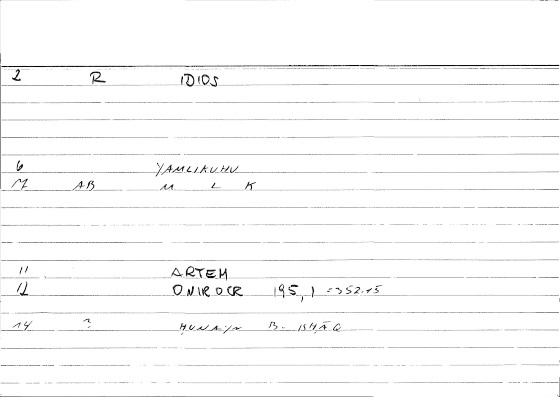 2 R IDIOS
6 YAMLIKUHU
M AB M L K
11 ARTEM
12 ONIROCR 195,1 =352.15
14 ? ḤUNAYN B. ISḤĀQ